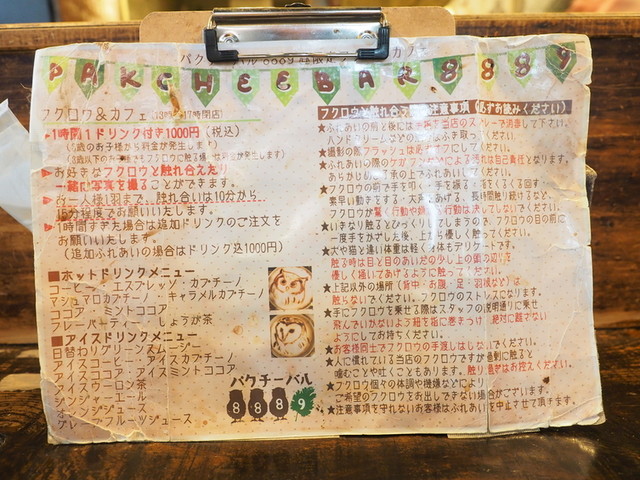 PAKCHEEBAR8889
フクロウ&カフェ
1時間1ドリンク付き1000円(税込)
(3歳以下のお子様でもフクロウに触る場合は料金が発生します)
お好きなフクロウと触れ合えたり
一緒に写真を撮ることができます。
お一人様1羽まで、触れ合いは10分から
15分程度でお願いいたします。
1時間すぎた場合は追加ドリンクのご注文を
お願いいたします。
(追加ふれあいの場合はドリンク込1000円)
■ホットドリンクメニュー
コーヒー エスプレッソ カプチーノ
マシュマロカプチーノ キャラメルカプチーノ
ココア ミントココア
フレーバーティー しょうが茶
■アイスドリンクメニュー
日替わりグリーンスムージー
アイスコーヒー アイスカプチーノ
アイスココア アイスミントココア
アイスウーロン茶
ジンジャーエール
オレンジジュース
グレープフルーツジュース
パクチーバル
8889
フクロウと触れ合える 注意事項(必ずお読みください)
★ふれあいの前と後には 当店のスプレーで消毒して下さい。
ハンドクリームなどは ふき取ってください。
★撮影の際フラッシュは必ずオフにしてください。
★ふれあいの際のケガ による汚れは自己責任となります。
あらかじめ 了承の上でふれあいして下さい。
★フクロウの前で手を叩く・手を振る・指をくるくる回す・
素早い動きをする・大声をあげる、長時間触り続けるなど、
フクロウが驚く行動や 行動は決してしないでください。
★いきなり触るとびっくりしてしまうので、フクロウの目の前に
一度手をかざした後、上から優しく触ってください。
★犬や猫と違い体重は軽く身体もデリケートです。
触る時は目と目のあいだの少し上の頭の辺りを
優しく描いてあげるように触ってください。
★上記以外の場所(背中・お腹・足・羽根など)は
触らないでください。フクロウのストレスになります。
★手にフクロウを乗せる際はスタッフの説明通りに乗せ
飛んでいかないよう紐を指に巻きつけ 絶対に離さない
ようにしてお持ちください。
★お客様同士でフクロウの手渡しはしないでください。
★人に慣れている当店のフクロウですが過剰に触ると
噛むことや吐くこともあります。触り過ぎはお控えください。
★フクロウ個々の体調や機嫌などにより
ご希望のフクロウをお出しできない場合がございます。
★注意事項を守れないお客様はふれあいを中止させて頂きます。